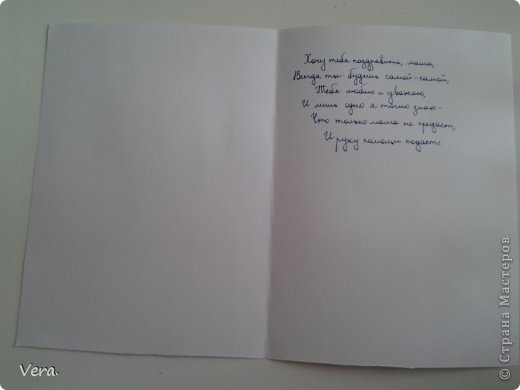 Хочу тебя поздравить, мама,
Всегда ты будешь самой-самой,
Тебя люблю и уважаю,
И лишь одно я точно знаю-
Что только мама не предаст,
И руку помощи подаст.
Vera.
© Страна Мастеров